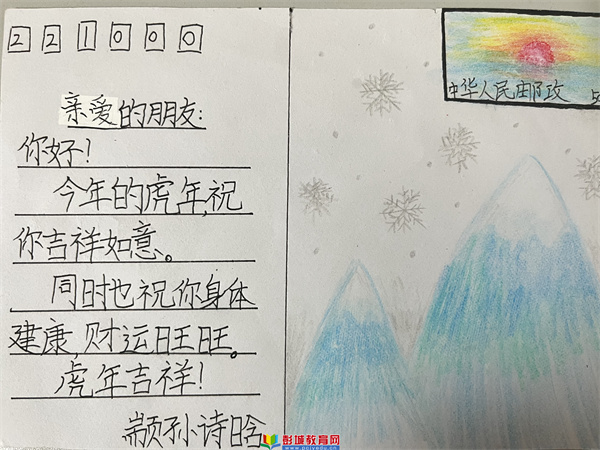 221000
中华人民邮政
亲爱的朋友:
你好!
今年的虎年,祝
你吉祥如意。
同时也祝你身体
建康,财运旺旺。
虎年吉祥!
颛孙诗晗
彭城教育网